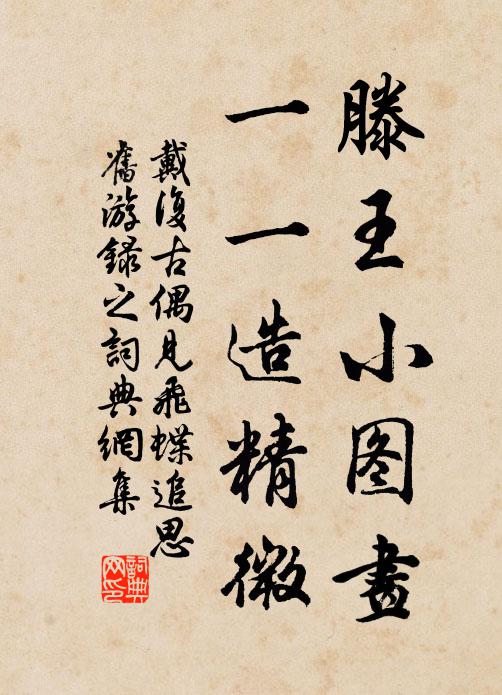 滕王小图畫
一一造精微
戴復古偶見飛蝶追思
舊游録之詞典網集
詞典网印